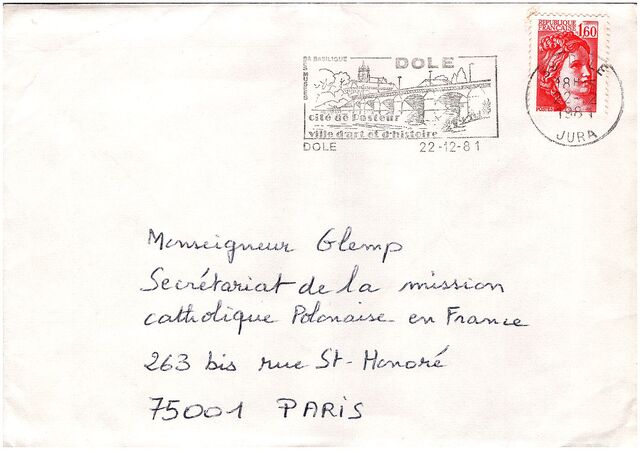 SA BASILIQUE
SES MUSÉES
DOLE
cité de Pasteur
ville d'art et d'histoire
DOLE 22-12-81
REPUBLIQUE
FRANÇAISE
1,60
18H
22
1981
JURA
Monseigneur Glemp
Secrétariat de la mission
catholique Polonaise en France
263 bis rue St-Honoré
75001 PARIS